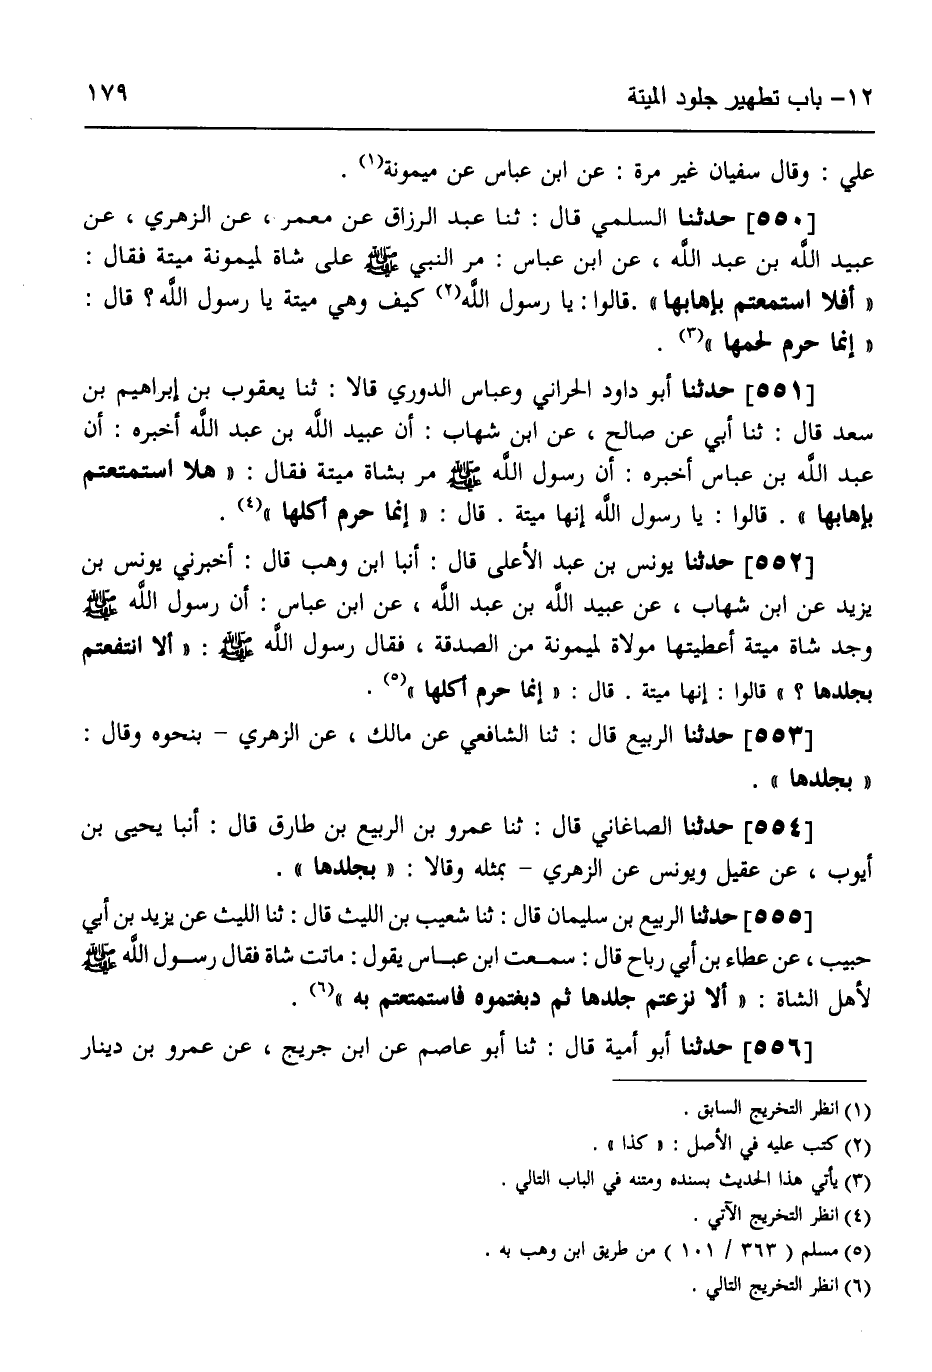 ١٢- باب تطهير جلود الميتة ١٧٩
علي : وقال سفيان غير مرة : عن ابن عباس عن ميمونة(١) .
[٥٥٠] حدثنا السلمي قال : ثنا عبد الرزاق عن معمر ، عن الزهري ، عن
عبيد اللَّه بن عبد اللَّه ، عن ابن عباس : مر النبي ﷺ على شاة لميمونة ميتة فقال :
« أفلا استمعتم بإهابها» .قالوا: يا رسول اللَّه(٢) كيف وهي ميتة يا رسول اللَّه؟ قال :
« إنما حرم لحمها »(٣) .
[٥٥١] حدثنا أبو داود الحراني وعباس الدوري قالا : ثنا يعقوب بن إبراهيم بن
سعد قال : ثنا أبي عن صالح ، عن ابن شهاب : أن عبيد اللَّه بن عبد اللَّه أخبره : أن
عبد اللَّه بن عباس أخبره : أن رسول اللَّه ﷺ مر بشاة ميتة فقال : « هلا استمتعتم
بإهابها » . قالوا : يا رسول اللَّه إنها ميتة . قال : « إنما حرم أكلها »(٤) .
[٥٥٢] حدثنا يونس بن عبد الأعلى قال : أنبا ابن وهب قال : أخبرني يونس بن
يزيد عن ابن شهاب ، عن عبيد اللَّه بن عبد اللَّه ، عن ابن عباس : أن رسول اللَّه ﷺ
وجد شاة ميتة أعطيتها مولاة لميمونة من الصدقة ، فقال رسول اللَّه ﷺ : « ألا انتفعتم
بجلدها ؟ » قالوا : إنها ميتة . قال : « إنما حرم أكلها »(٥) .
[٥٥٣] حدثنا الربيع قال : ثنا الشافعي عن مالك ، عن الزهري – بنحوه وقال :
« بجلدها » .
[٥٥٤] حدثنا الصاغاني قال : ثنا عمرو بن الربيع بن طارق قال : أنبا يحيى بن
أيوب ، عن عقيل ويونس عن الزهري – بمثله وقالا : « بجلدها » .
[٥٥٥] حدثنا الربيع بن سليمان قال : ثنا شعيب بن الليث قال : ثنا الليث عن يزيد بن أبي
حبيب ، عن عطاء بن أبي رباح قال : سمعت ابن عباس يقول : ماتت شاة فقال رسول اللَّه ﷺ
لأهل الشاة : « ألا نزعتم جلدها ثم دبغتموه فاستمتعتم به »(٦) .
[٥٥٦] حدثنا أبو أمية قال : ثنا أبو عاصم عن ابن جريج ، عن عمرو بن دينار
(١) انظر التخريج السابق .
(٢) كتب عليه في الأصل : « كذا » .
(٣) يأتي هذا الحديث بسنده ومتنه في الباب التالي .
(٤) انظر التخريج الآتي .
(٥) مسلم ( ٣٦٣ / ١٠١ ) من طريق ابن وهب به .
(٦) انظر التخريج التالي .